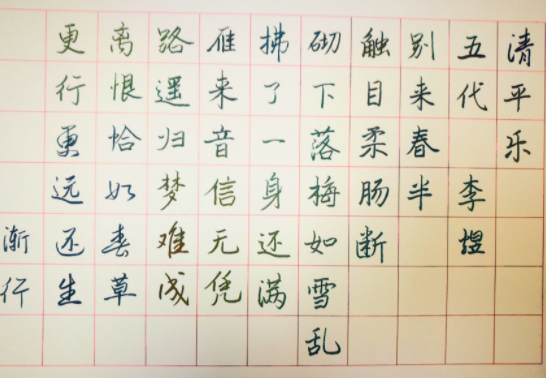 清平乐
五代 李煜
别来春半
触目柔肠断
砌下落梅如雪乱
拂了一身还满
雁来音信无凭
路遥归梦难成
离恨恰如春草
更行更远还生
渐行